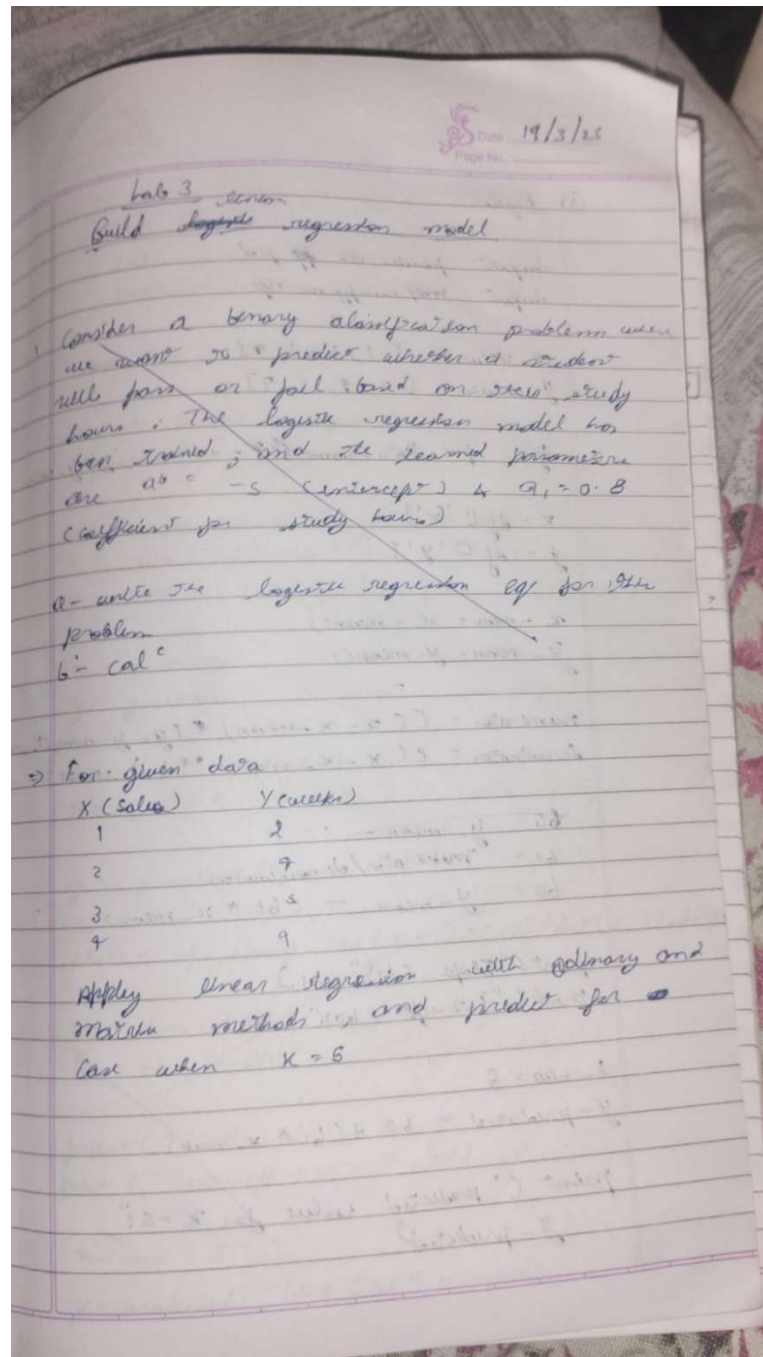 Date 19/3/25
Page No.
Lab 3
linear
Build logistic regression model
Consider a binary classification problem where
we want to predict whether a student
will pass or fail based on their study
hours. The logistic regression model has
been trained, and the learned parameters
are a0 = -5 (intercept) & a1 = 0.8
(coefficient for study hours)
a- write the logistic regression eq for this
problem
b- cal
=> For given data
X (Sales) Y (weeks)
1 2
2 4
3
4 9
Apply linear regression with odinary and
matrix methods and predict for
Case when X = 5